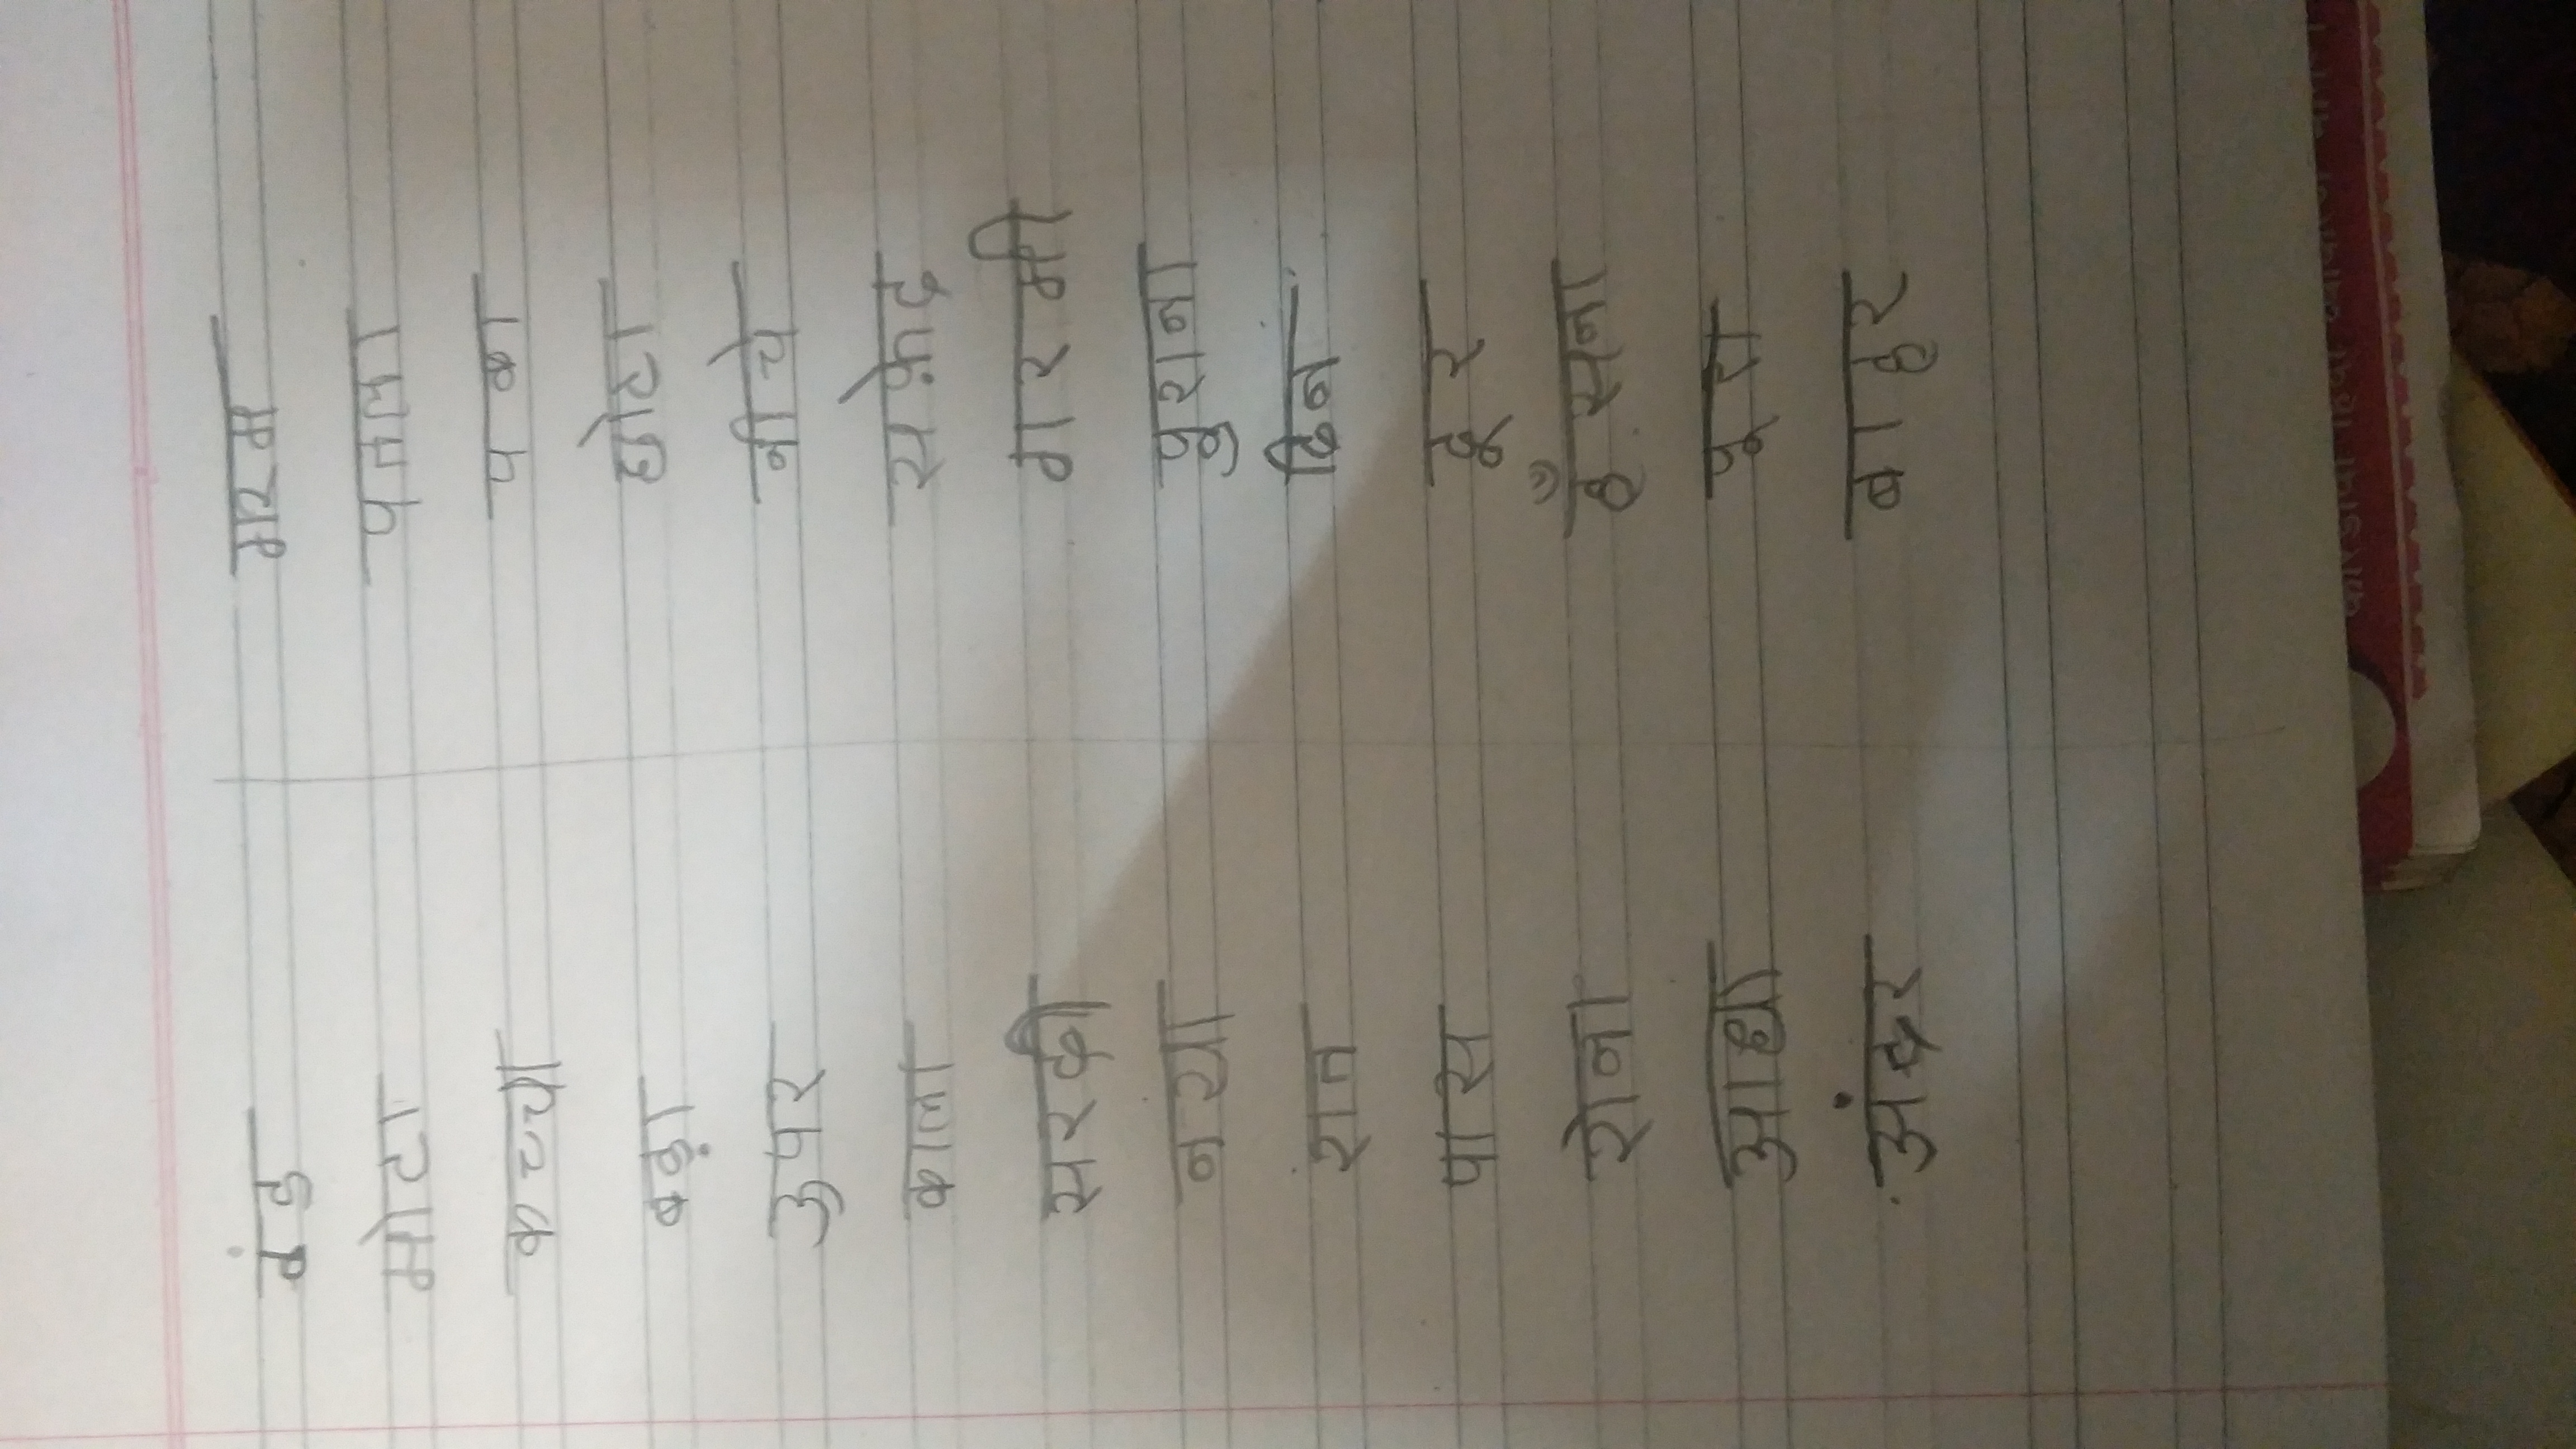 ठंड गरम
मोटा पतला
कच्चा पका
बड़ा छोटा
उपर नीचे
काला सफ़ेद
सरदी गरमी
नया पुराना
रात दिन
पास दूर
रोना हँसना
आधा पूरा
अंदर बाहर